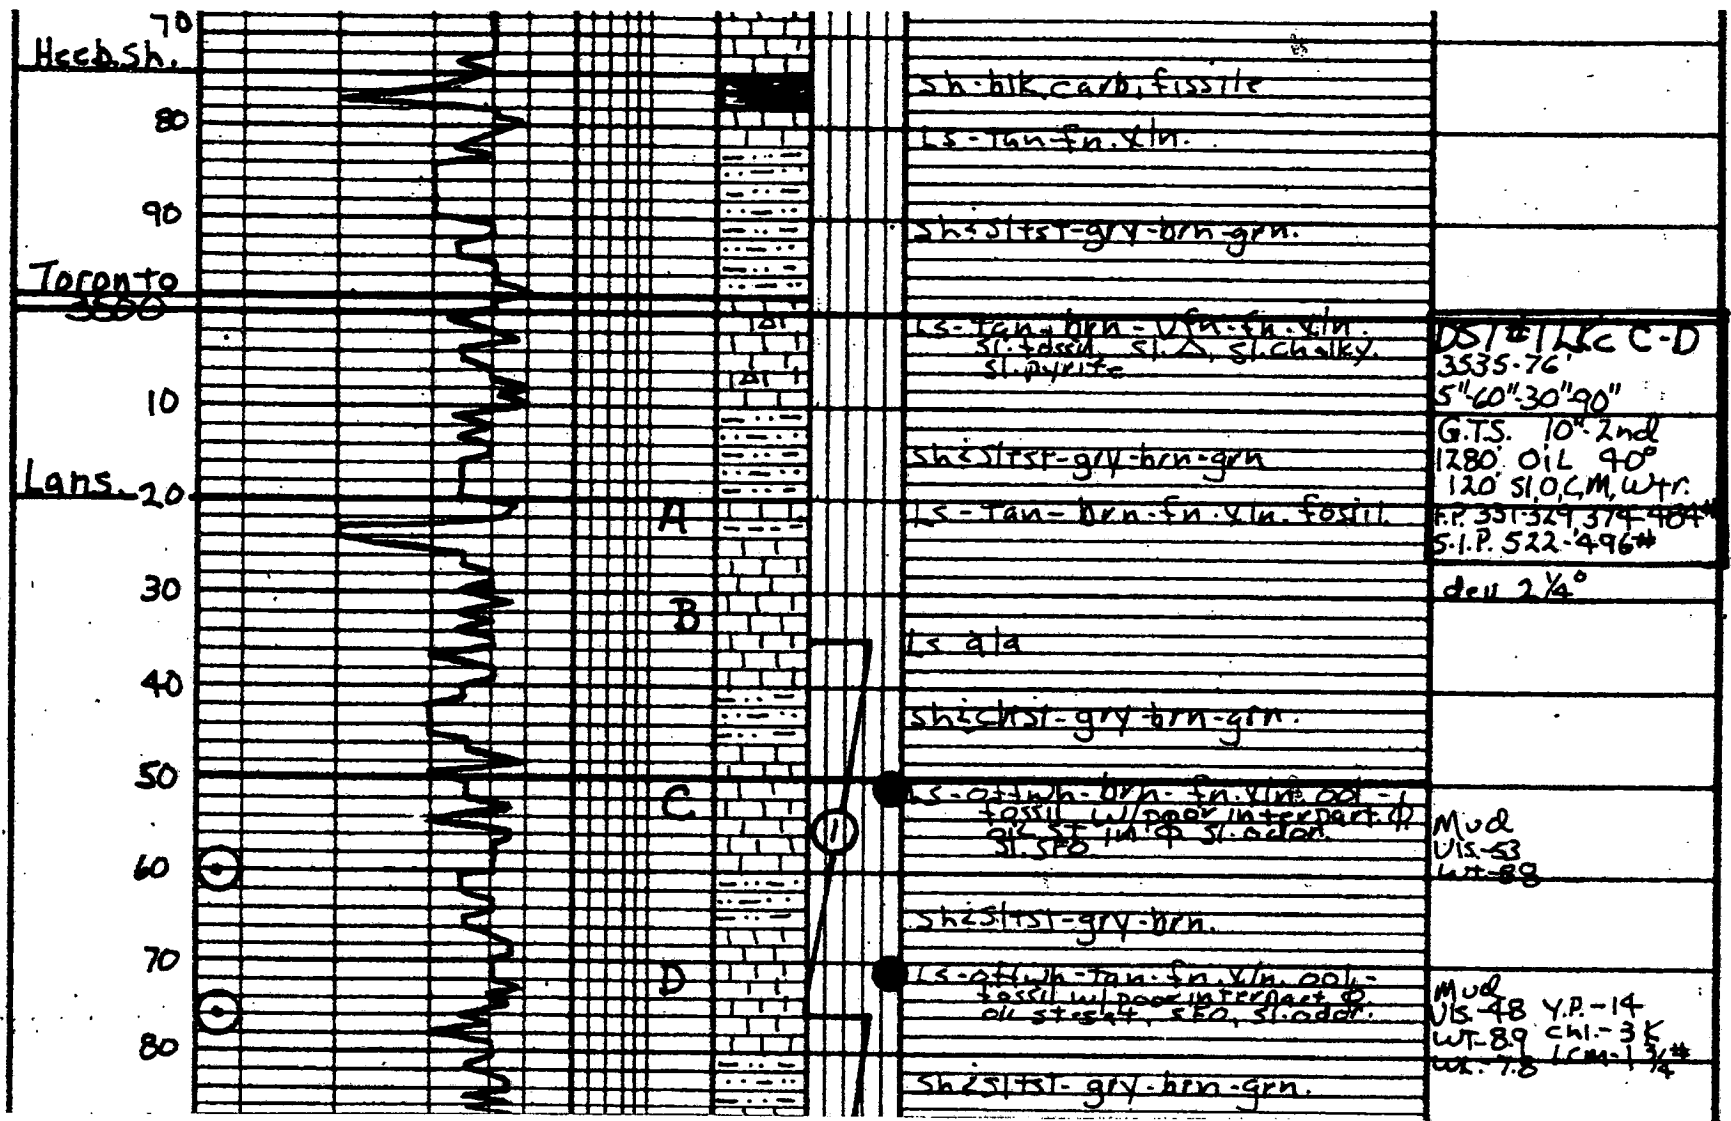 70
Heeb.Sh.
Sh-blk, carb, fissile
80
Ls-Tan-fn.xln.
90
Sh&Sltst-gry-brn-grn.
Toronto
3500
Ls-Tan-brn-Vfn-fn.xln.
sl.fossil, sl.△, sl.chalky.
sl.pyrite
10
Sh&Sltst-gry-brn-grn
Lans.
20
A
Ls-Tan-brn-fn.xln.fossil.
30
B
Ls a/a
40
Sh&Sltst-gry-brn-grn.
50
C
Ls-offwh-brn-fn.xln. ool-
fossil w/poor interpart φ
oil ST in φ sl.odor.
sl.SFO
1
60
Sh&Sltst-gry-brn.
70
D
Ls-offwh-Tan-fn.xln.ool.-
fossil w/poor interpart φ
oil st, SFO, sl.odor.
80
Sh&Sltst-gry-brn-grn.
DST#1 LKC C-D
3535-76'
5"-60"-30"-90"
G.T.S. 10"-2nd
1280' OIL 40°
120' Sl,O,C,M,Wtr.
F.P. 331-329, 374-484#
S.I.P. 522-496#
dev 2 1/4°
Mud
Vis-53
WT-8.8
Mud
Vis.-48 Y.P.-14
WT-8.9 Chl.-3K
WL-7.8 LCM-1 3/4#